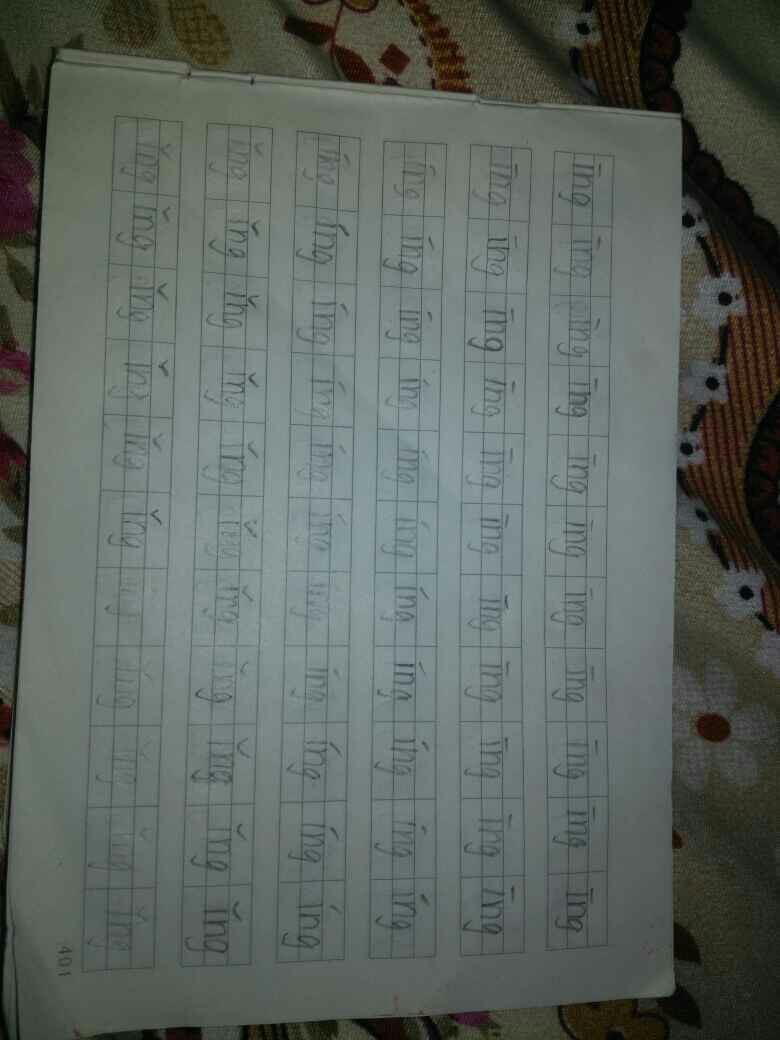 īng īng īng īng īng īng īng īng īng īng īng
īng īng īng īng īng īng īng īng īng īng īng
íng íng íng íng íng íng íng íng íng íng íng
íng íng íng íng íng íng íng íng íng íng íng
ǐng ǐng ǐng ǐng ǐng ǐng ǐng ǐng ǐng ǐng ǐng
ǐng ǐng ǐng ǐng ǐng ǐng ǐng ǐng ǐng ǐng ǐng
401